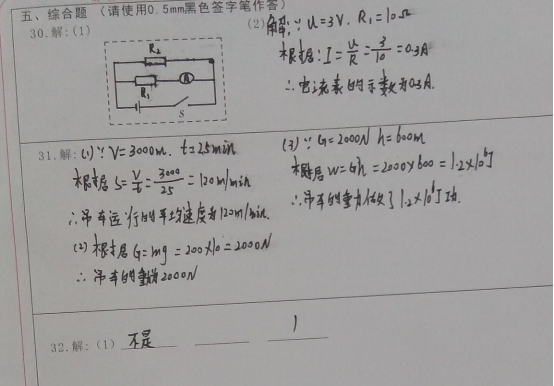 五、综合题（请使用0.5mm黑色签字笔作答）
30.解:(1)
R₂
R₁
A
S
(2)解:∵U=3V. R₁=10Ω
根据:I=U/R=3/10=0.3A
∴电流表的示数为0.3A.
31.解:(1)∵V=3000m. t=25min
根据S=V/t=3000/25=120m/min
∴吊车运行的平均速度为120m/min.
(2)根据G=mg=200×10=2000N
∴吊车的重力为2000N
(3)∵G=2000N h=600m
根据W=Gh=2000×600=1.2×10⁶J
∴吊车的重力做了1.2×10⁶J功.
32.解:(1) 不是 1